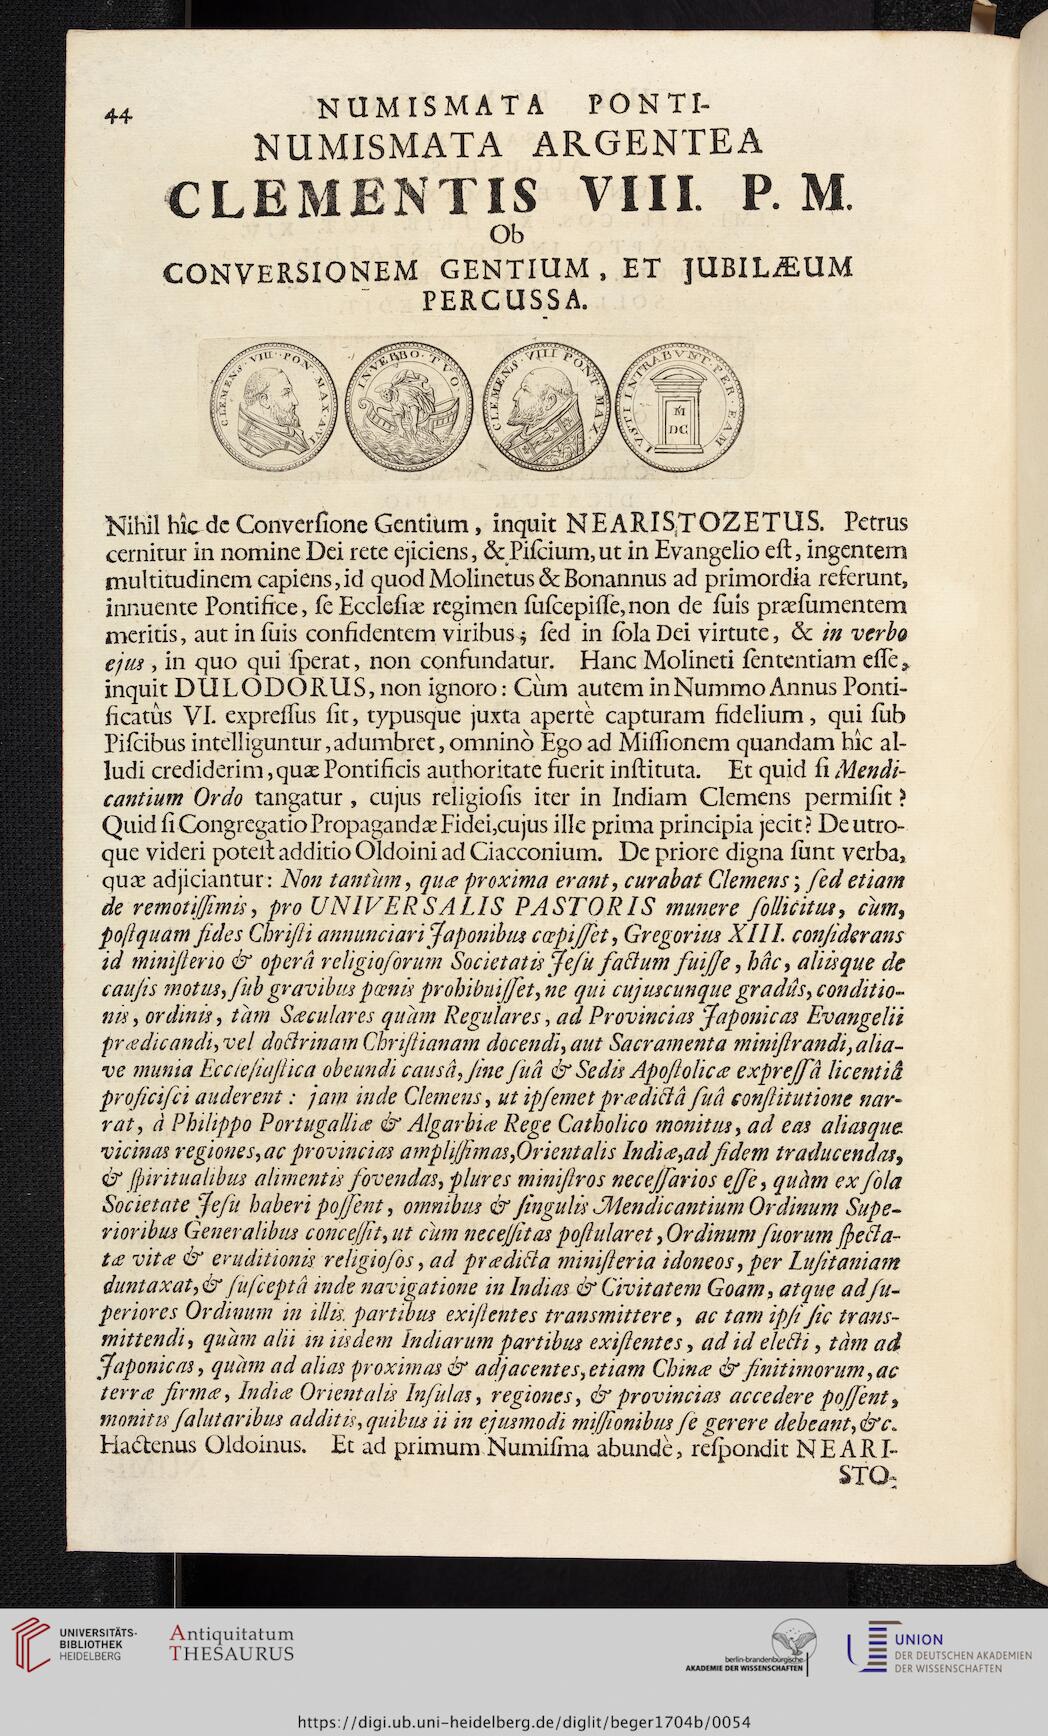 44
NUMISMATA PONTI-
NUMISMATA ARGENTEA
CLEMENTIS VIII. P. M.
Ob
CONVERSIONEM GENTIUM, ET JUBILÆUM
PERCUSSA.
CLEMENS · VIII · PON · MAX · A VI
IN VERBO · TVO ·
CLEMENS · VIII PONT MAX ·
IVSTI INTRABVNT · PER · EAM
M
DC
Nihil hîc de Converſione Gentium, inquit NEARISTOZETUS. Petrus
cernitur in nomine Dei rete ejiciens, & Piſcium, ut in Evangelio eſt, ingentem
multitudinem capiens, id quod Molinetus & Bonannus ad primordia referunt,
innuente Pontifice, ſe Eccleſiæ regimen ſuſcepiſſe, non de ſuis præſumentem
meritis, aut in ſuis confidentem viribus; ſed in ſola Dei virtute, & in verbo
ejus, in quo qui ſperat, non confundatur. Hanc Molineti ſententiam eſſe,
inquit DULODORUS, non ignoro: Cùm autem in Nummo Annus Ponti-
ficatûs VI. expreſſus ſit, typusque juxta apertè capturam fidelium, qui ſub
Piſcibus intelliguntur, adumbret, omninò Ego ad Miſſionem quandam hîc al-
ludi crediderim, quæ Pontificis authoritate fuerit inſtituta. Et quid ſi Mendi-
cantium Ordo tangatur, cujus religioſis iter in Indiam Clemens permiſit?
Quid ſi Congregatio Propagandæ Fidei, cujus ille prima principia jecit? De utro-
que videri poteſt additio Oldoini ad Ciacconium. De priore digna ſunt verba,
quæ adjiciantur: Non tantùm, quæ proxima erant, curabat Clemens; ſed etiam
de remotiſſimis, pro UNIVERSALIS PASTORIS munere ſollicitus, cùm,
poſtquam fides Chriſti annunciari Japonibus cœpiſſet, Gregorius XIII. conſiderans
id miniſterio & operâ religioſorum Societatis Jeſu factum fuiſſe, hâc, aliisque de
cauſis motus, ſub gravibus pœnis prohibuiſſet, ne qui cujuscunque gradûs, conditio-
nis, ordinis, tàm Sæculares quàm Regulares, ad Provincias Japonicas Evangelii
prædicandi, vel doctrinam Chriſtianam docendi, aut Sacramenta miniſtrandi, alia-
ve munia Eccleſiaſtica obeundi causâ, ſine ſuâ & Sedis Apoſtolicæ expreſſâ licentiâ
proficiſci auderent: jam inde Clemens, ut ipſemet prædictâ ſuâ conſtitutione nar-
rat, à Philippo Portugalliæ & Algarbiæ Rege Catholico monitus, ad eas aliasque
vicinas regiones, ac provincias ampliſſimas, Orientalis Indiæ, ad fidem traducendas,
& ſpiritualibus alimentis fovendas, plures miniſtros neceſſarios eſſe, quàm ex ſola
Societate Jeſu haberi poſſent, omnibus & ſingulis Mendicantium Ordinum Supe-
rioribus Generalibus conceſſit, ut cùm neceſſitas poſtularet, Ordinum ſuorum ſpecta-
tæ vitæ & eruditionis religioſos, ad prædicta miniſteria idoneos, per Luſitaniam
duntaxat, & ſuſceptâ inde navigatione in Indias & Civitatem Goam, atque ad ſu-
periores Ordinum in illis partibus exiſtentes transmittere, ac tam ipſi ſic trans-
mittendi, quàm alii in iisdem Indiarum partibus exiſtentes, ad id electi, tàm ad
Japonicas, quàm ad alias proximas & adjacentes, etiam Chinæ & finitimorum, ac
terræ firmæ, Indiæ Orientalis Inſulas, regiones, & provincias accedere poſſent,
monitis ſalutaribus additis, quibus ii in ejusmodi miſſionibus ſe gerere debeant, &c.
Hactenus Oldoinus. Et ad primum Numiſma abundè, reſpondit NEARI-
STO-
UNIVERSITÄTS-
BIBLIOTHEK
HEIDELBERG
Antiquitatum
THESAURUS
berlin-brandenburgische
AKADEMIE DER WISSENSCHAFTEN
UNION
DER DEUTSCHEN AKADEMIEN
DER WISSENSCHAFTEN
https://digi.ub.uni-heidelberg.de/diglit/beger1704b/0054